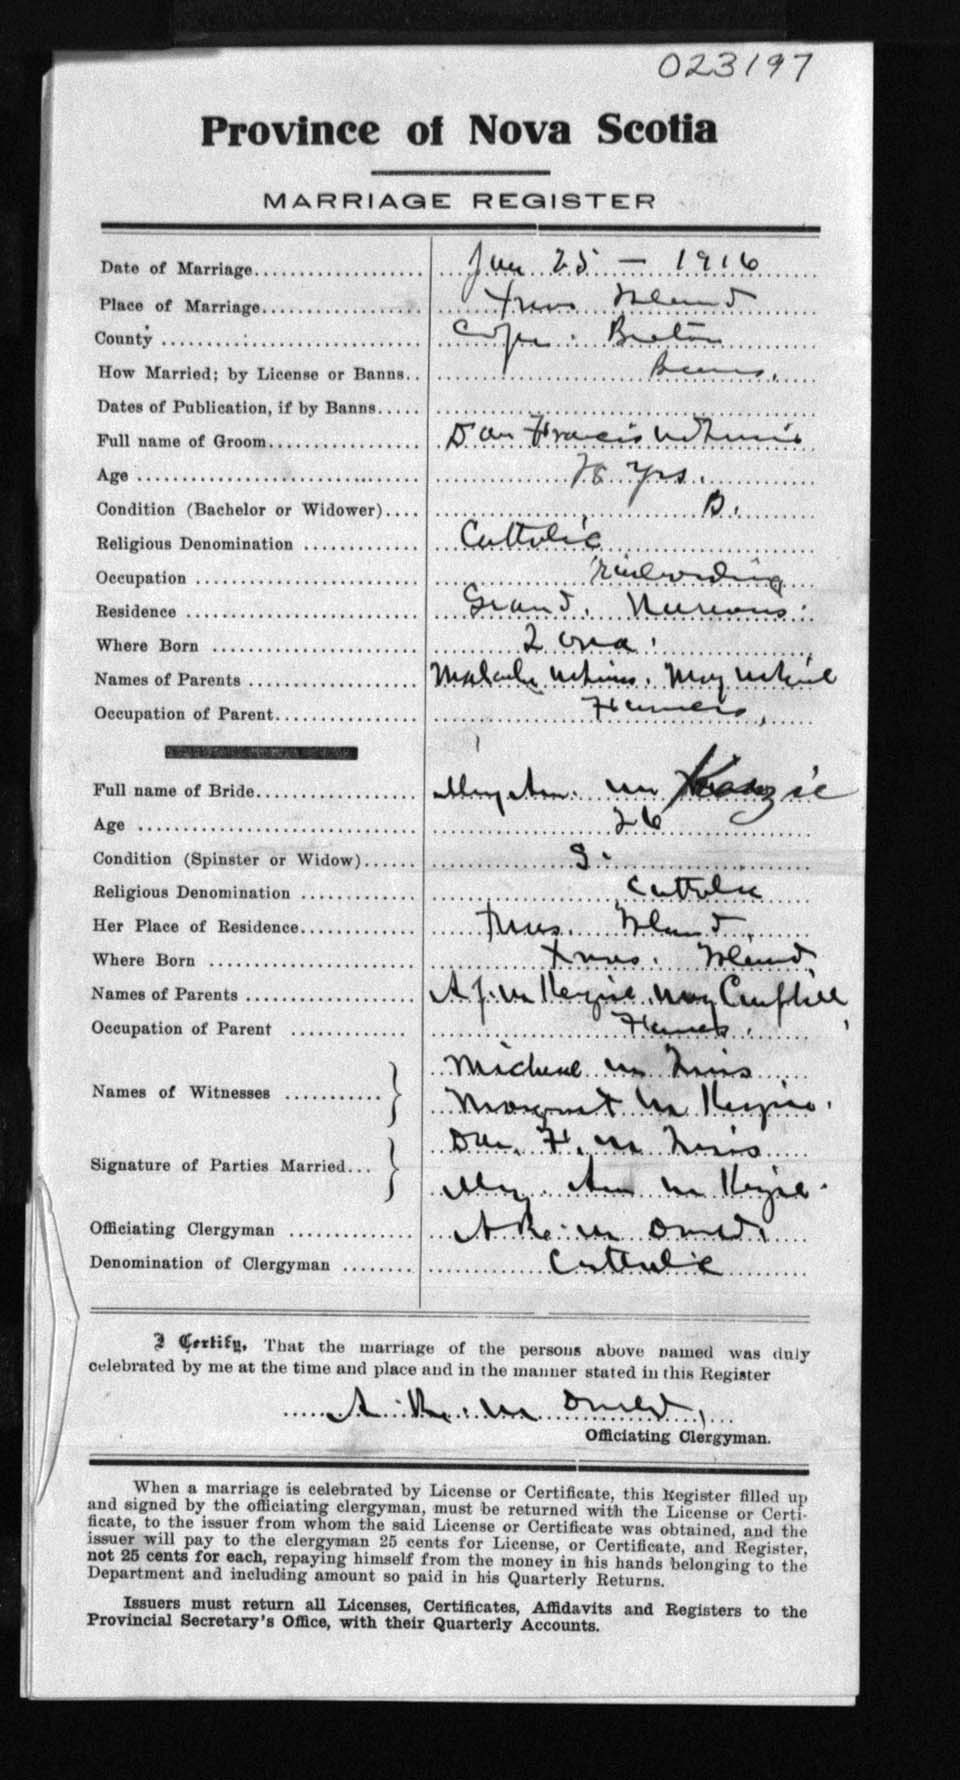 023197
Province of Nova Scotia
MARRIAGE REGISTER
Date of Marriage 25 — 1916
Place of Marriage Xmas Island
County Cape Breton
How Married; by License or Banns Banns.
Dates of Publication, if by Banns
Full name of Groom Dan Francis
Age 28 yrs.
Condition (Bachelor or Widower) B.
Religious Denomination Catholic
Occupation railroading
Residence Grand Narrows.
Where Born Iona.
Names of Parents
Occupation of Parent Farmers,
Full name of Bride Mary Ann. Mc Kenzie
Age 26
Condition (Spinster or Widow) S.
Religious Denomination Catholic
Her Place of Residence Xmas. Island
Where Born Xmas. Island
Names of Parents A J. Mc Kenzie Mary Campbell
Occupation of Parent Farmer.
Names of Witnesses Michael Mc Innis
Margaret Mc Kenzie.
Signature of Parties Married Dan. F. Mc Innis
Mary Ann Mc Kenzie.
Officiating Clergyman A. R. Mc Donald.
Denomination of Clergyman Catholic
I Certify, That the marriage of the persons above named was duly
celebrated by me at the time and place and in the manner stated in this Register
A. R. Mc Donald,
Officiating Clergyman.
When a marriage is celebrated by License or Certificate, this Register filled up
and signed by the officiating clergyman, must be returned with the License or Certi-
ficate, to the issuer from whom the said License or Certificate was obtained, and the
issuer will pay to the clergyman 25 cents for License, or Certificate, and Register,
not 25 cents for each, repaying himself from the money in his hands belonging to the
Department and including amount so paid in his Quarterly Returns.
Issuers must return all Licenses, Certificates, Affidavits and Registers to the
Provincial Secretary's Office, with their Quarterly Accounts.